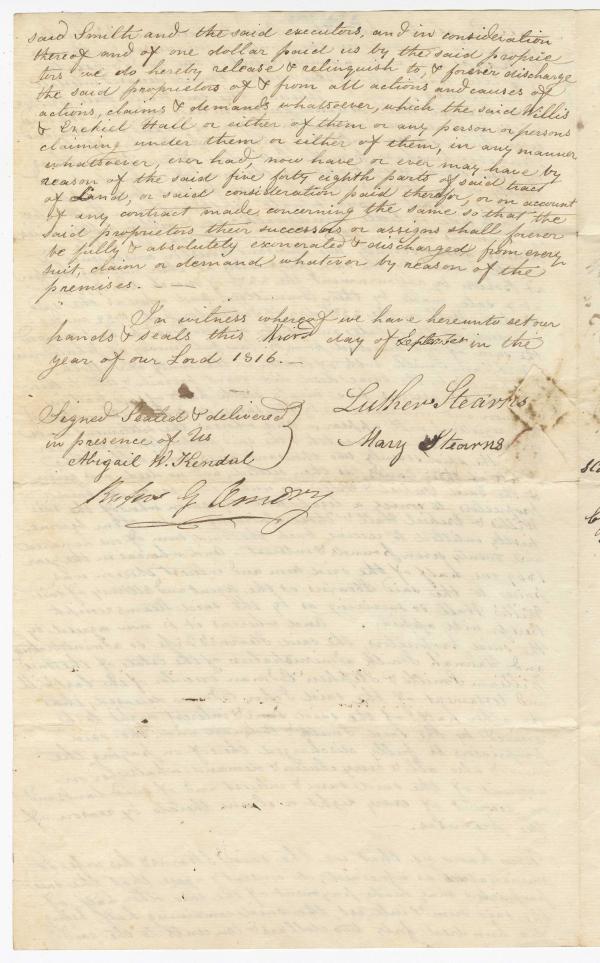 said Smith and the said executors, and in consideration
thereof and of one dollar paid us by the said proprie
tors we do hereby release & relinquish to, & forever discharge
the said proprietors of & from all actions and causes of
actions, claims & demands whatsoever, which the said Willis
& Ezekiel Hall or either of them or any person or persons
claiming under them or either of them, in any manner
whatsoever, ever had, now have or ever may have by
reason of the said five forty eighth parts of said tract
of Land, or said consideration paid therefor, or on account
of any contract made concerning the same so that the
said proprietors their successors or assigns shall forever
be fully & absolutely exonerated & discharged from every
suit, claim or demand whatever by reason of the
premises.
In witness whereof we have hereunto set our
hands & seals this third day of September in the
year of our Lord 1816.
Signed Sealed & delivered
in presence of Us
Abigail W. Kendal
Rufus G Amory
Luther Stearns
Mary Stearns